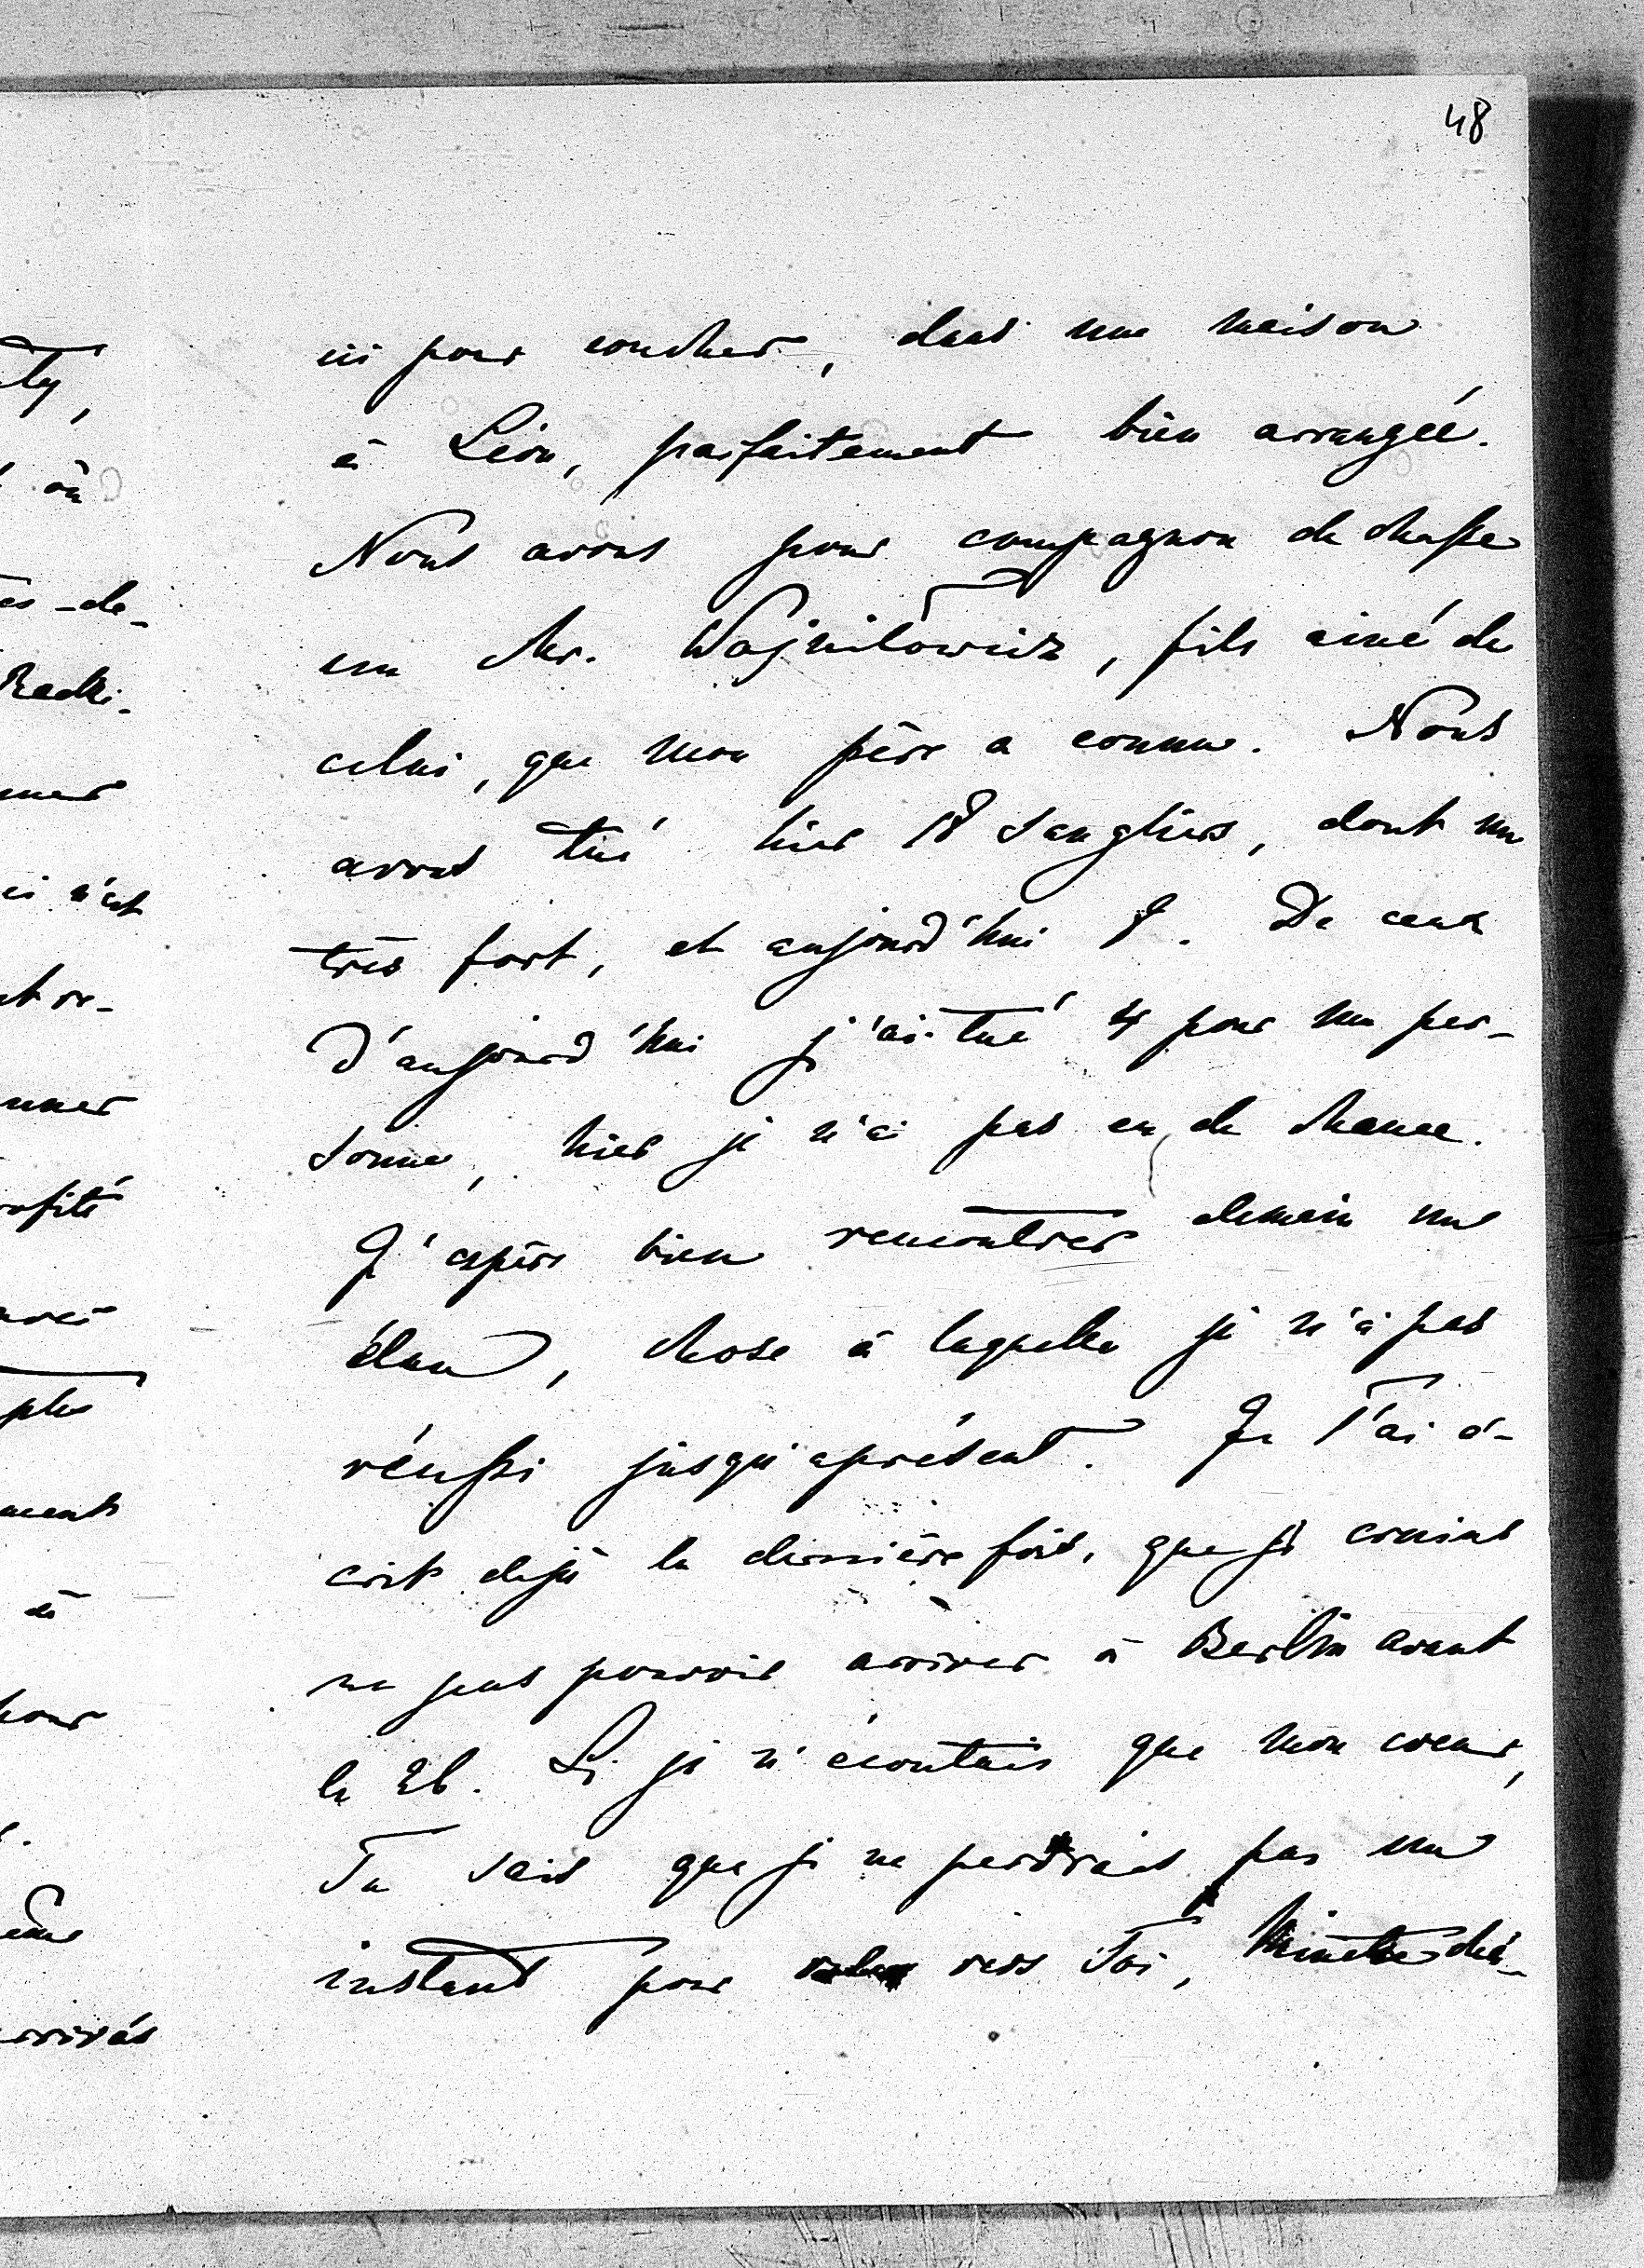 48
ici pour coucher, dans une maison
à Léon, parfaitement bien arrangée.
Nous avons pour compagnon de chasse
un Mr. Wojniłowicz, fils ainé de
celui, que mon père a connu. Nous
avons tué hier 18 sangliers, dont un
très fort, et aujourd'hui 8. De ceux
d'aujourd'hui j'ai tué 4 pour ma per-
sonne, hier je n'ai pas eu de chance.
J'espère bien rencontrer demain un
élan, chose à laquelle je n'ai pas
réussi jusqu'aprésent. Je T'ai é-
crit dejà la dernière fois, que je crains
ne pas pouvoir arriver à Berlin avant
le 26. Si je n'écoutais que mon coeur,
Tu sais que je ne perdrais pas un
instant pour voler vers Toi, Minette ché-
ty,
où
es-de-
Radzi-
ci n'est
nt re-
nner
rofité
plus
ment
à
pour
ême
arrivés